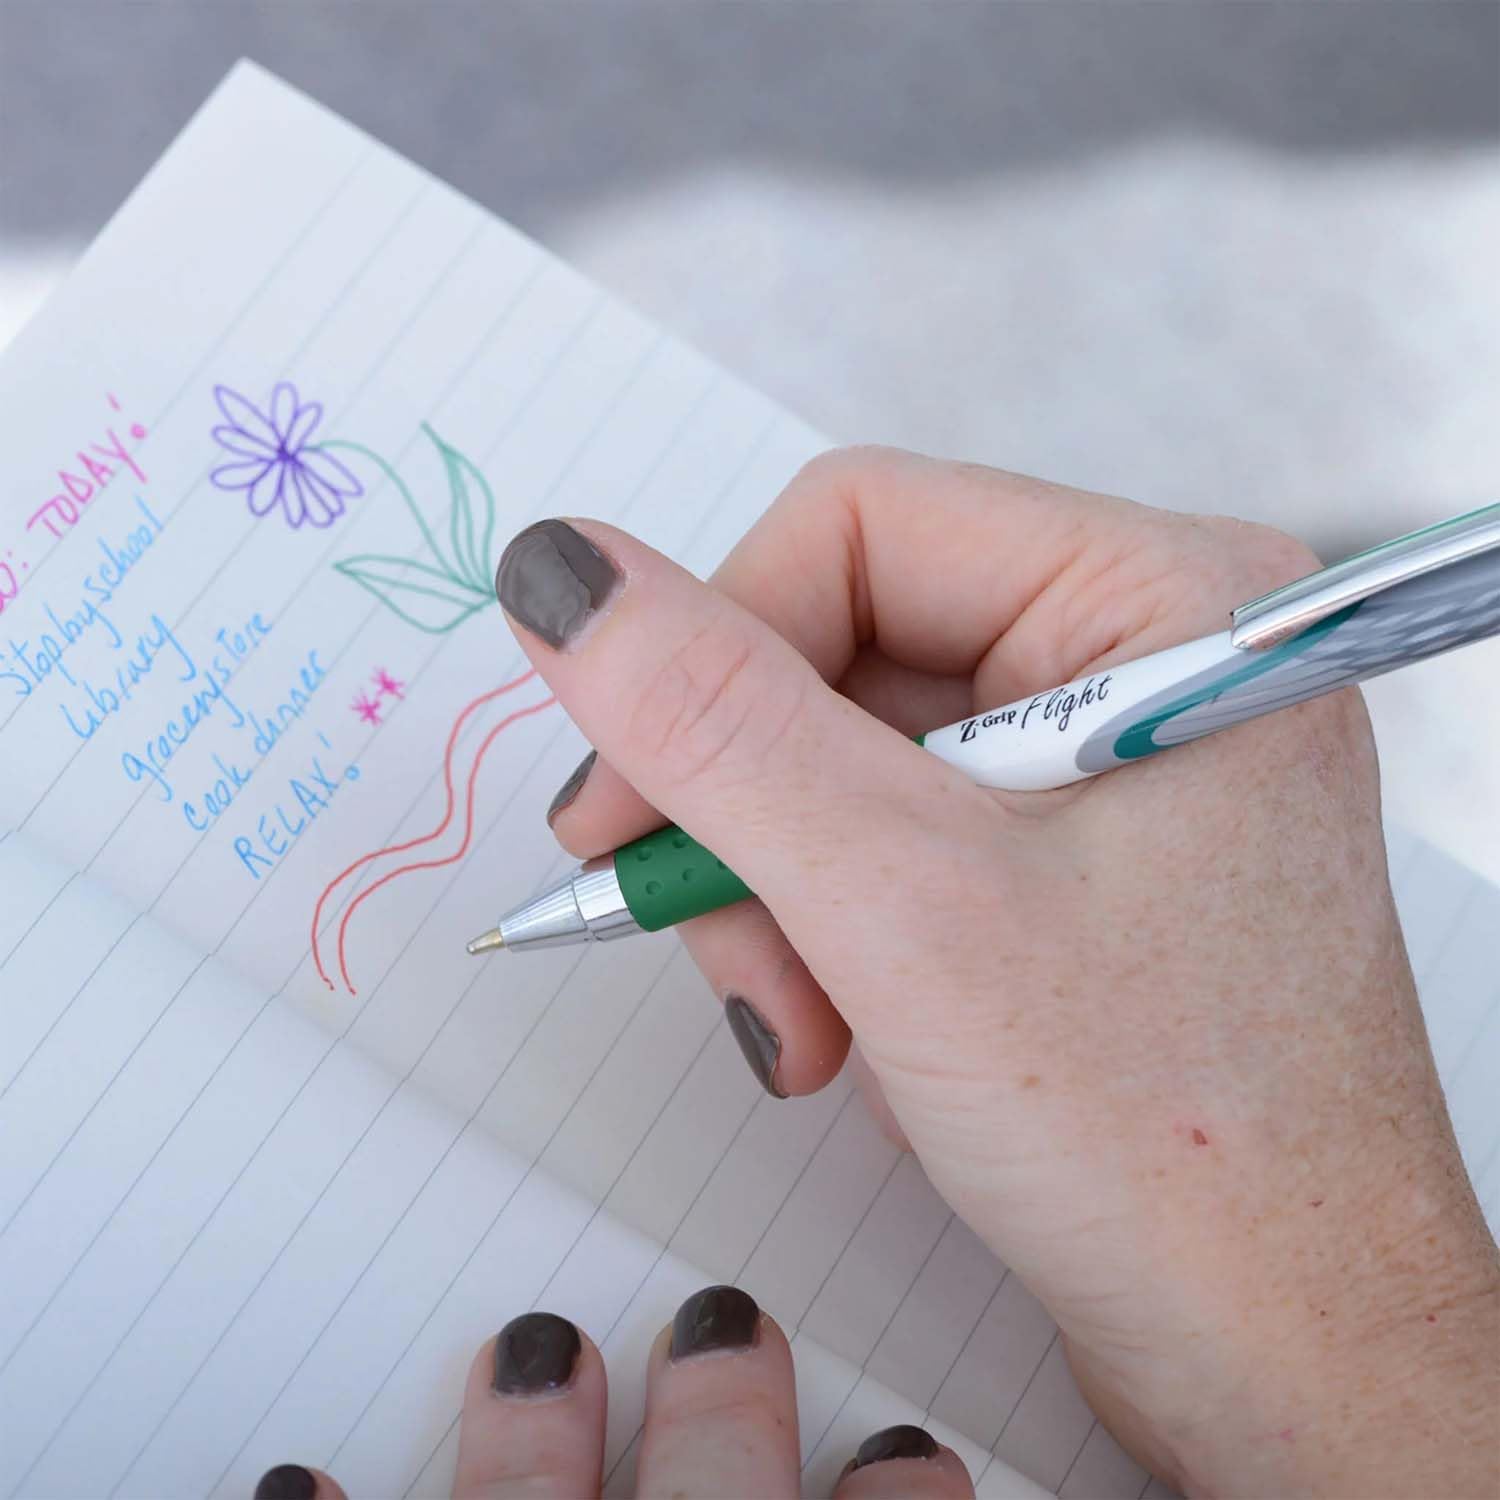 TODAY!
Stop by school
Library
grocery store
cook dinner
RELAX!
Z-Grip Flight